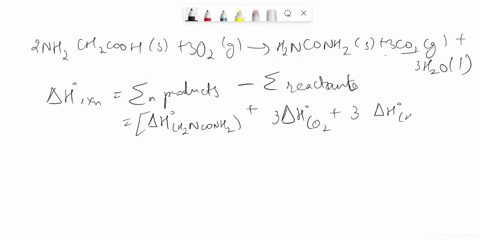 2NH2 CH2COOH (s) + 3O2 (g) → H2NCONH2 (s) + 3CO2 (g) +
3H2O (l)
ΔH°,rxn = Σn products − Σ reactants
= [ΔH°(H2NCONH2) + 3ΔH°(O2 + 3 ΔH°(